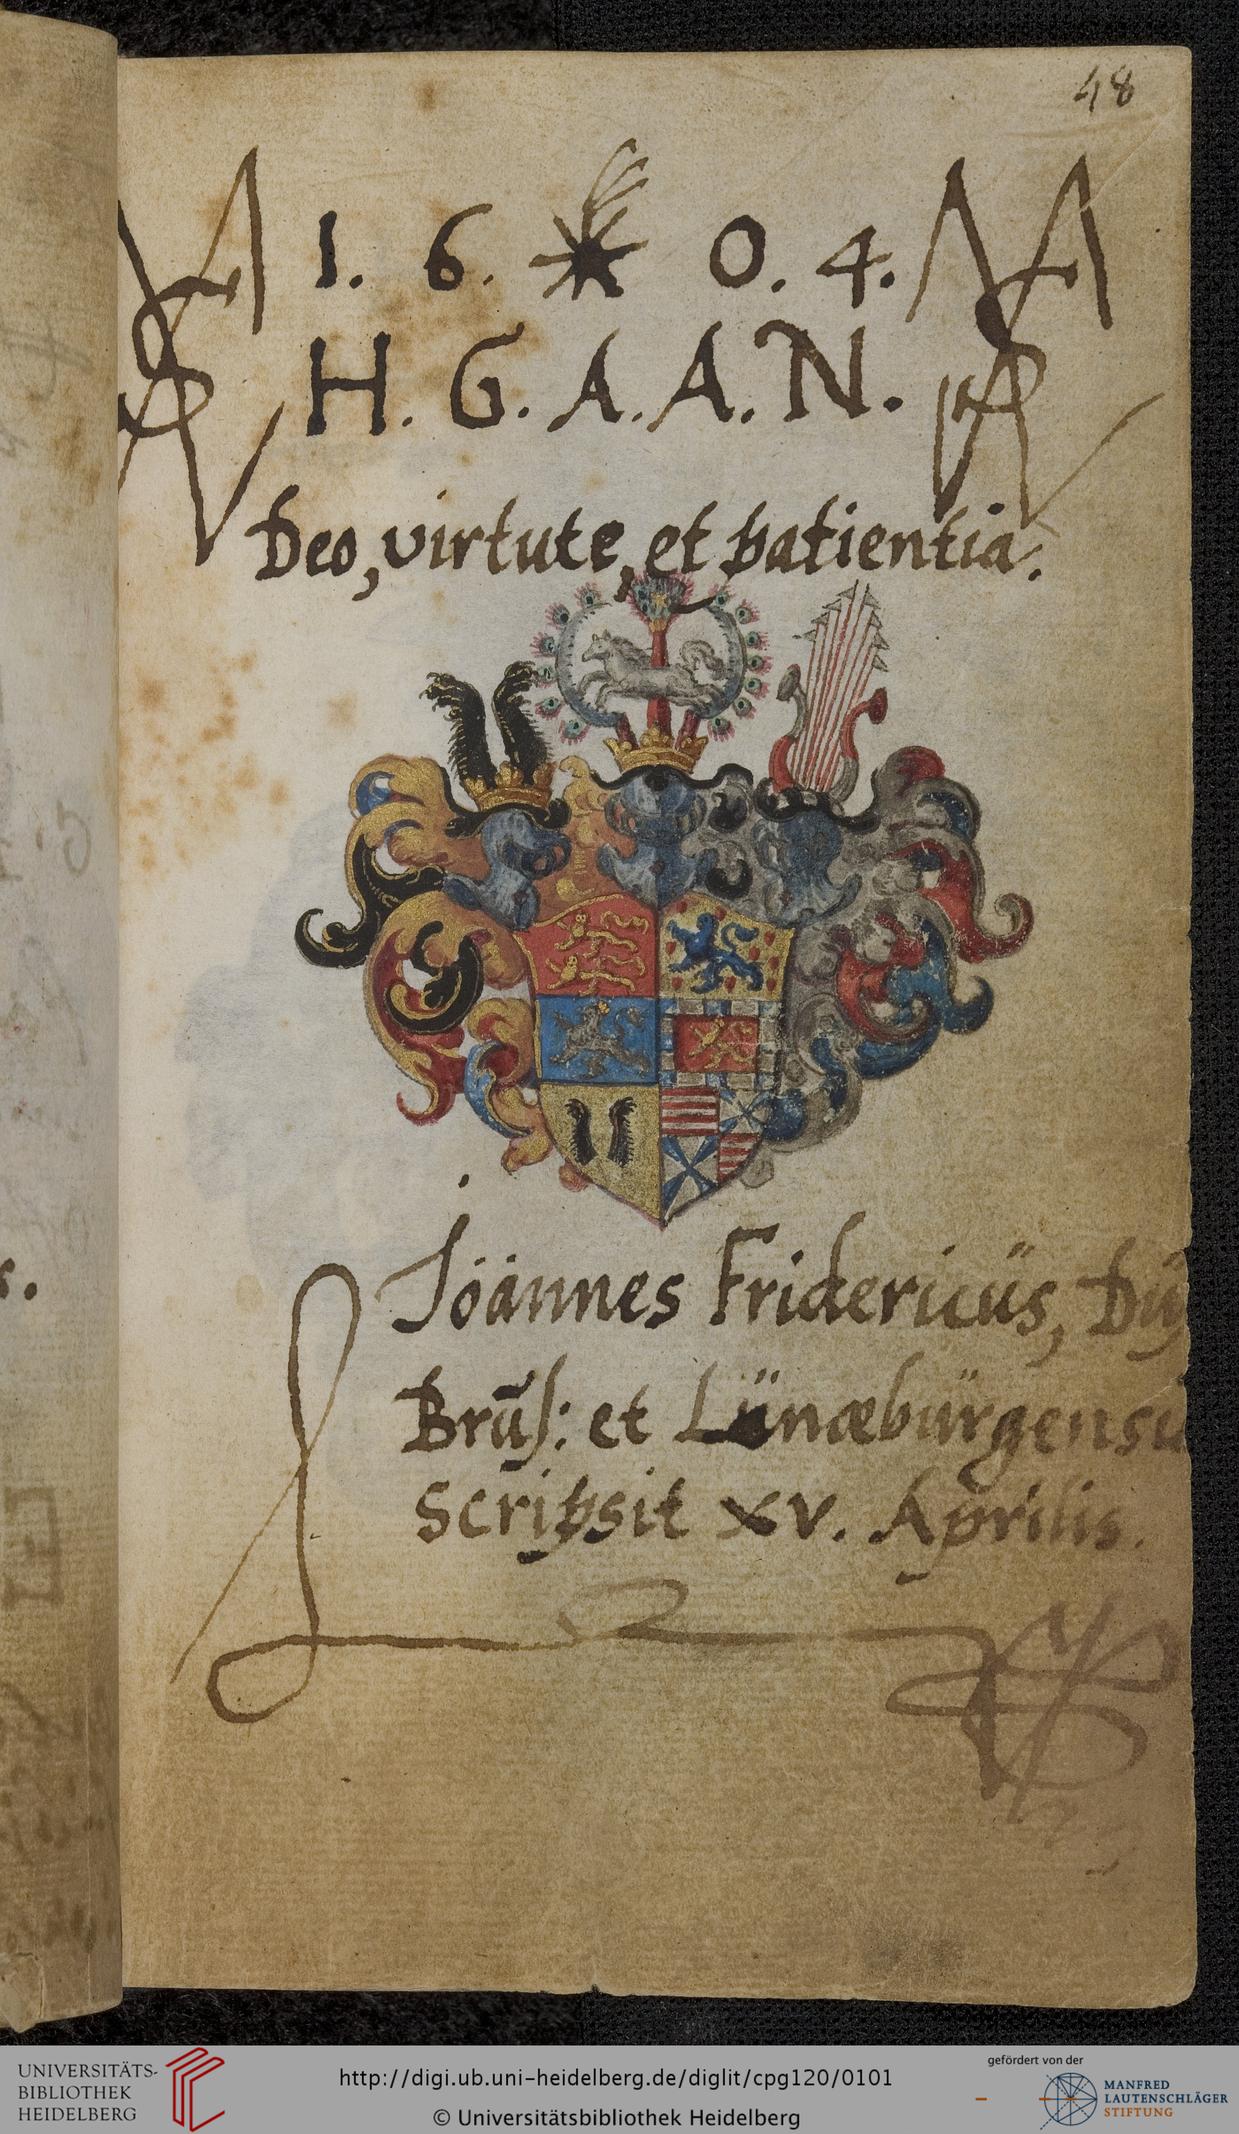 48
1. 6. 0. 4.
H. G. A. A. N.
Deo, virtute, et patientia.
Ioannes Fridericus, Dux
Bruns: et Lünæburgensis
Scripsit XV. Aprilis.
UNIVERSITÄTS-
BIBLIOTHEK
HEIDELBERG
http://digi.ub.uni-heidelberg.de/diglit/cpg120/0101
© Universitätsbibliothek Heidelberg
gefördert von der
MANFRED
LAUTENSCHLÄGER
STIFTUNG